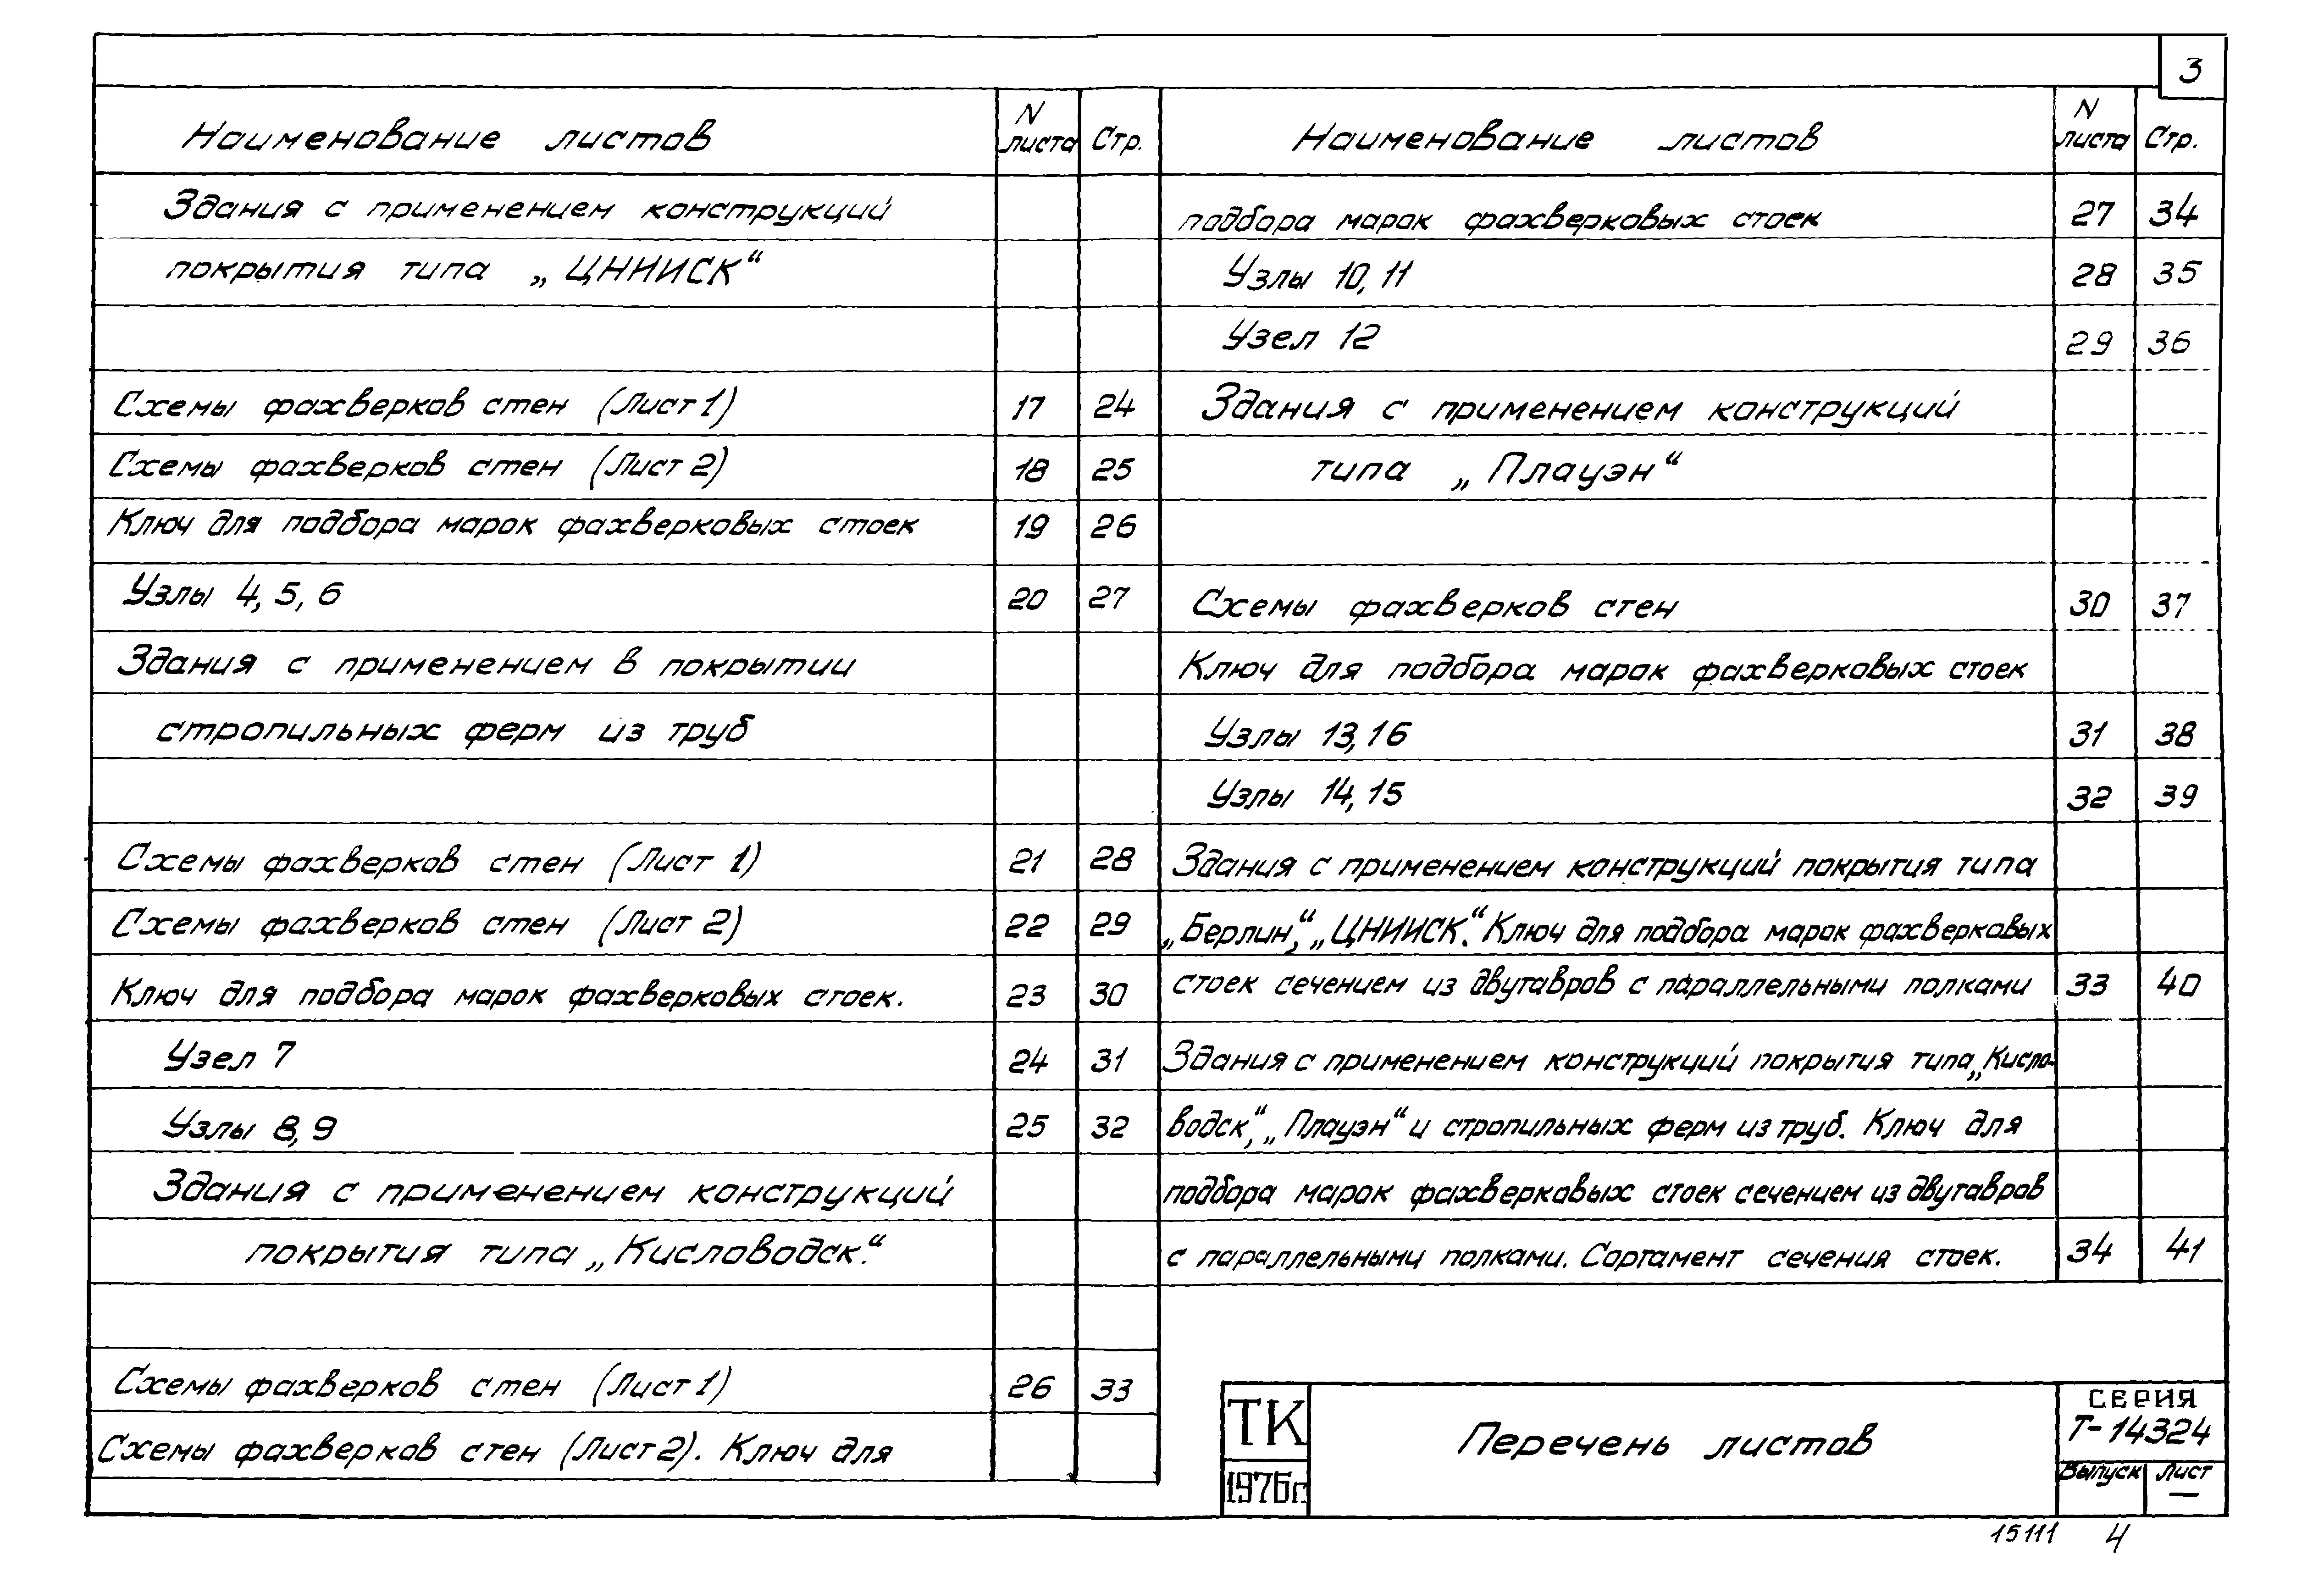 3
Наименование листов N листа Стр.
Здания с применением конструкций
покрытия типа „ЦНИИСК“
Схемы фахверков стен (Лист 1) 17 24
Схемы фахверков стен (Лист 2) 18 25
Ключ для подбора марок фахверковых стоек 19 26
Узлы 4, 5, 6 20 27
Здания с применением в покрытии
стропильных ферм из труб
Схемы фахверков стен (Лист 1) 21 28
Схемы фахверков стен (Лист 2) 22 29
Ключ для подбора марок фахверковых стоек. 23 30
Узел 7 24 31
Узлы 8, 9 25 32
Здания с применением конструкций
покрытия типа „Кисловодск.“
Схемы фахверков стен (Лист 1) 26 33
Схемы фахверков стен (Лист 2). Ключ для
Наименование листов N листа Стр.
подбора марок фахверковых стоек 27 34
Узлы 10, 11 28 35
Узел 12 29 36
Здания с применением конструкций
типа „Плауэн“
Схемы фахверков стен 30 37
Ключ для подбора марок фахверковых стоек
Узлы 13, 16 31 38
Узлы 14, 15 32 39
Здания с применением конструкций покрытия типа
„Берлин,“ „ЦНИИСК.“ Ключ для подбора марок фахверковых
стоек сечением из двутавров с параллельными полками 33 40
Здания с применением конструкций покрытия типа „Кисло-
водск,“ „Плауэн“ и стропильных ферм из труб. Ключ для
подбора марок фахверковых стоек сечением из двутавров
с параллельными полками. Сортамент сечения стоек. 34 41
ТК
1976г
Перечень листов
СЕРИЯ
Т-14324
Выпуск Лист
—
15111 4